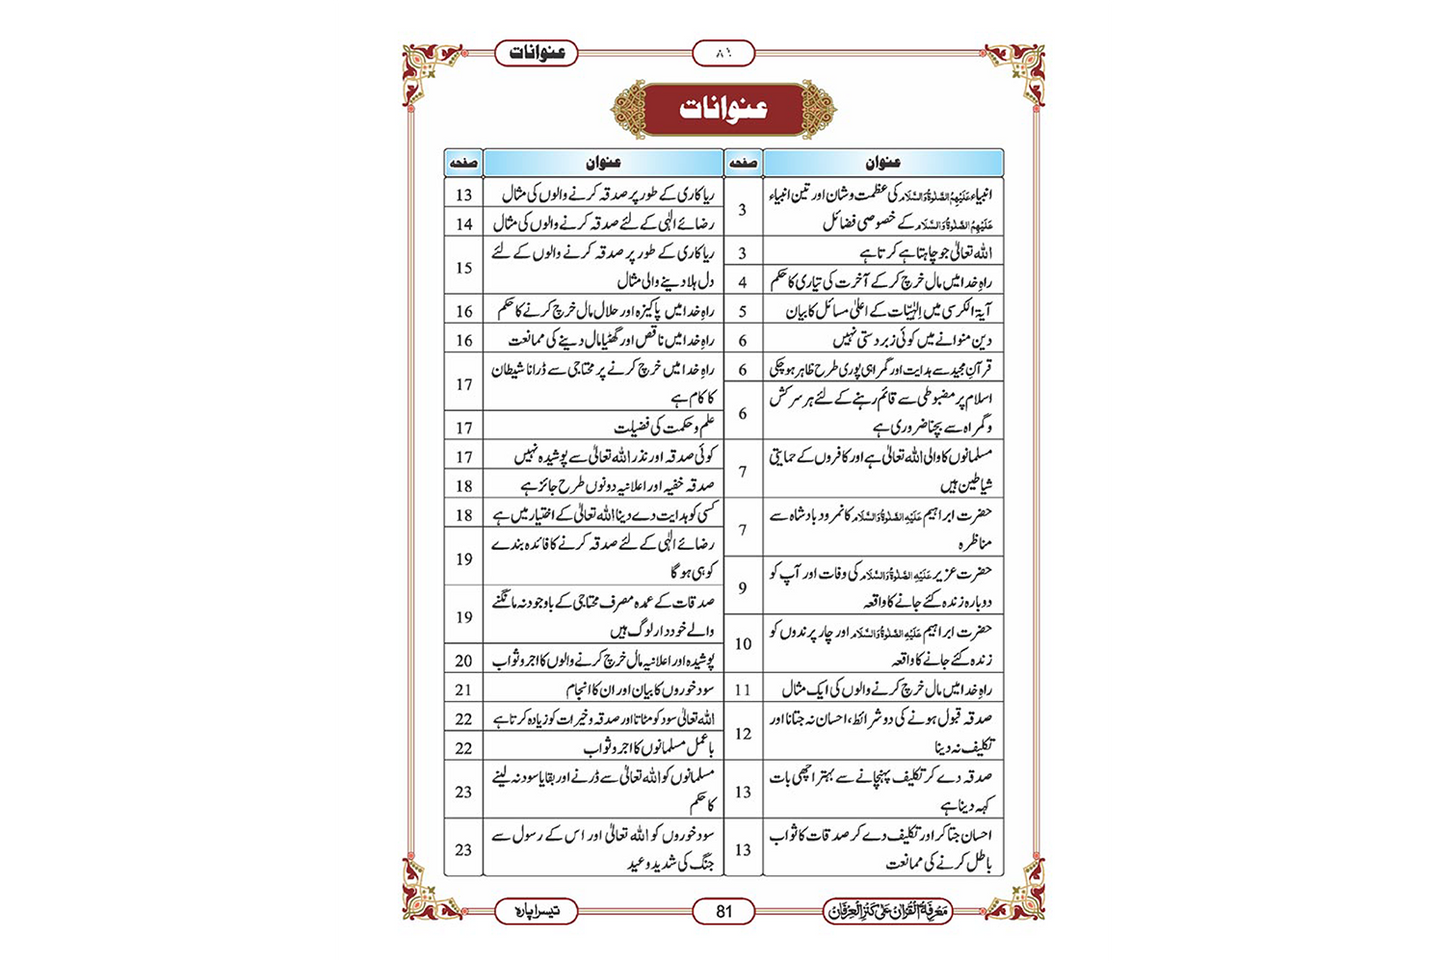 عنوانات
۸۱
عنوانات
عنوان
صفحہ
انبیاء عَلَیْہِمُ الصَّلٰوۃُ وَالسَّلَام کی عظمت و شان اور تین انبیاء
عَلَیْہِمُ الصَّلٰوۃُ وَالسَّلَام کے خصوصی فضائل
3
اللہ تعالیٰ جو چاہتا ہے کرتا ہے
3
راہِ خدا میں مال خرچ کر کے آخرت کی تیاری کا حکم
4
آیۃ الکرسی میں اِلٰہیّات کے اعلیٰ مسائل کا بیان
5
دین منوانے میں کوئی زبردستی نہیں
6
قرآنِ مجید سے ہدایت اور گمراہی پوری طرح ظاہر ہو چکی
6
اسلام پر مضبوطی سے قائم رہنے کے لئے ہر سرکش
و گمراہ سے بچنا ضروری ہے
6
مسلمانوں کا والی اللہ تعالیٰ ہے اور کافروں کے حمایتی
شیاطین ہیں
7
حضرت ابراہیم عَلَیْہِ الصَّلٰوۃُ وَالسَّلَام کا نمرود بادشاہ سے
مناظرہ
7
حضرت عزیر عَلَیْہِ الصَّلٰوۃُ وَالسَّلَام کی وفات اور آپ کو
دوبارہ زندہ کئے جانے کا واقعہ
9
حضرت ابراہیم عَلَیْہِ الصَّلٰوۃُ وَالسَّلَام اور چار پرندوں کو
زندہ کئے جانے کا واقعہ
10
راہِ خدا میں مال خرچ کرنے والوں کی ایک مثال
11
صدقہ قبول ہونے کی دو شرائط، احسان نہ جتانا اور
تکلیف نہ دینا
12
صدقہ دے کر تکلیف پہنچانے سے بہتر اچھی بات
کہہ دینا ہے
13
احسان جتا کر اور تکلیف دے کر صدقات کا ثواب
باطل کرنے کی ممانعت
13
عنوان
صفحہ
ریاکاری کے طور پر صدقہ کرنے والوں کی مثال
13
رضائے الٰہی کے لئے صدقہ کرنے والوں کی مثال
14
ریاکاری کے طور پر صدقہ کرنے والوں کے لئے
دل ہلا دینے والی مثال
15
راہِ خدا میں پاکیزہ اور حلال مال خرچ کرنے کا حکم
16
راہِ خدا میں ناقص اور گھٹیا مال دینے کی ممانعت
16
راہِ خدا میں خرچ کرنے پر محتاجی سے ڈرانا شیطان
کا کام ہے
17
علم و حکمت کی فضیلت
17
کوئی صدقہ اور نذر اللہ تعالیٰ سے پوشیدہ نہیں
17
صدقہ خفیہ اور اعلانیہ دونوں طرح جائز ہے
18
کسی کو ہدایت دے دینا اللہ تعالیٰ کے اختیار میں ہے
18
رضائے الٰہی کے لئے صدقہ کرنے کا فائدہ بندے
کو ہی ہو گا
19
صدقات کے عمدہ مصرف محتاجی کے باوجود نہ مانگنے
والے خوددار لوگ ہیں
19
پوشیدہ اور اعلانیہ مال خرچ کرنے والوں کا اجر و ثواب
20
سود خوروں کا بیان اور ان کا انجام
21
اللہ تعالیٰ سود کو مٹاتا اور صدقہ و خیرات کو زیادہ کرتا ہے
22
باعمل مسلمانوں کا اجر و ثواب
22
مسلمانوں کو اللہ تعالیٰ سے ڈرنے اور بقایا سود نہ لینے
کا حکم
23
سود خوروں کو اللہ تعالیٰ اور اس کے رسول سے
جنگ کی شدید وعید
23
مَعْرِفَۃُ الْقُرْاٰن عَلٰی کَنْزِ الْعِرْفَان
81
تیسرا پارہ